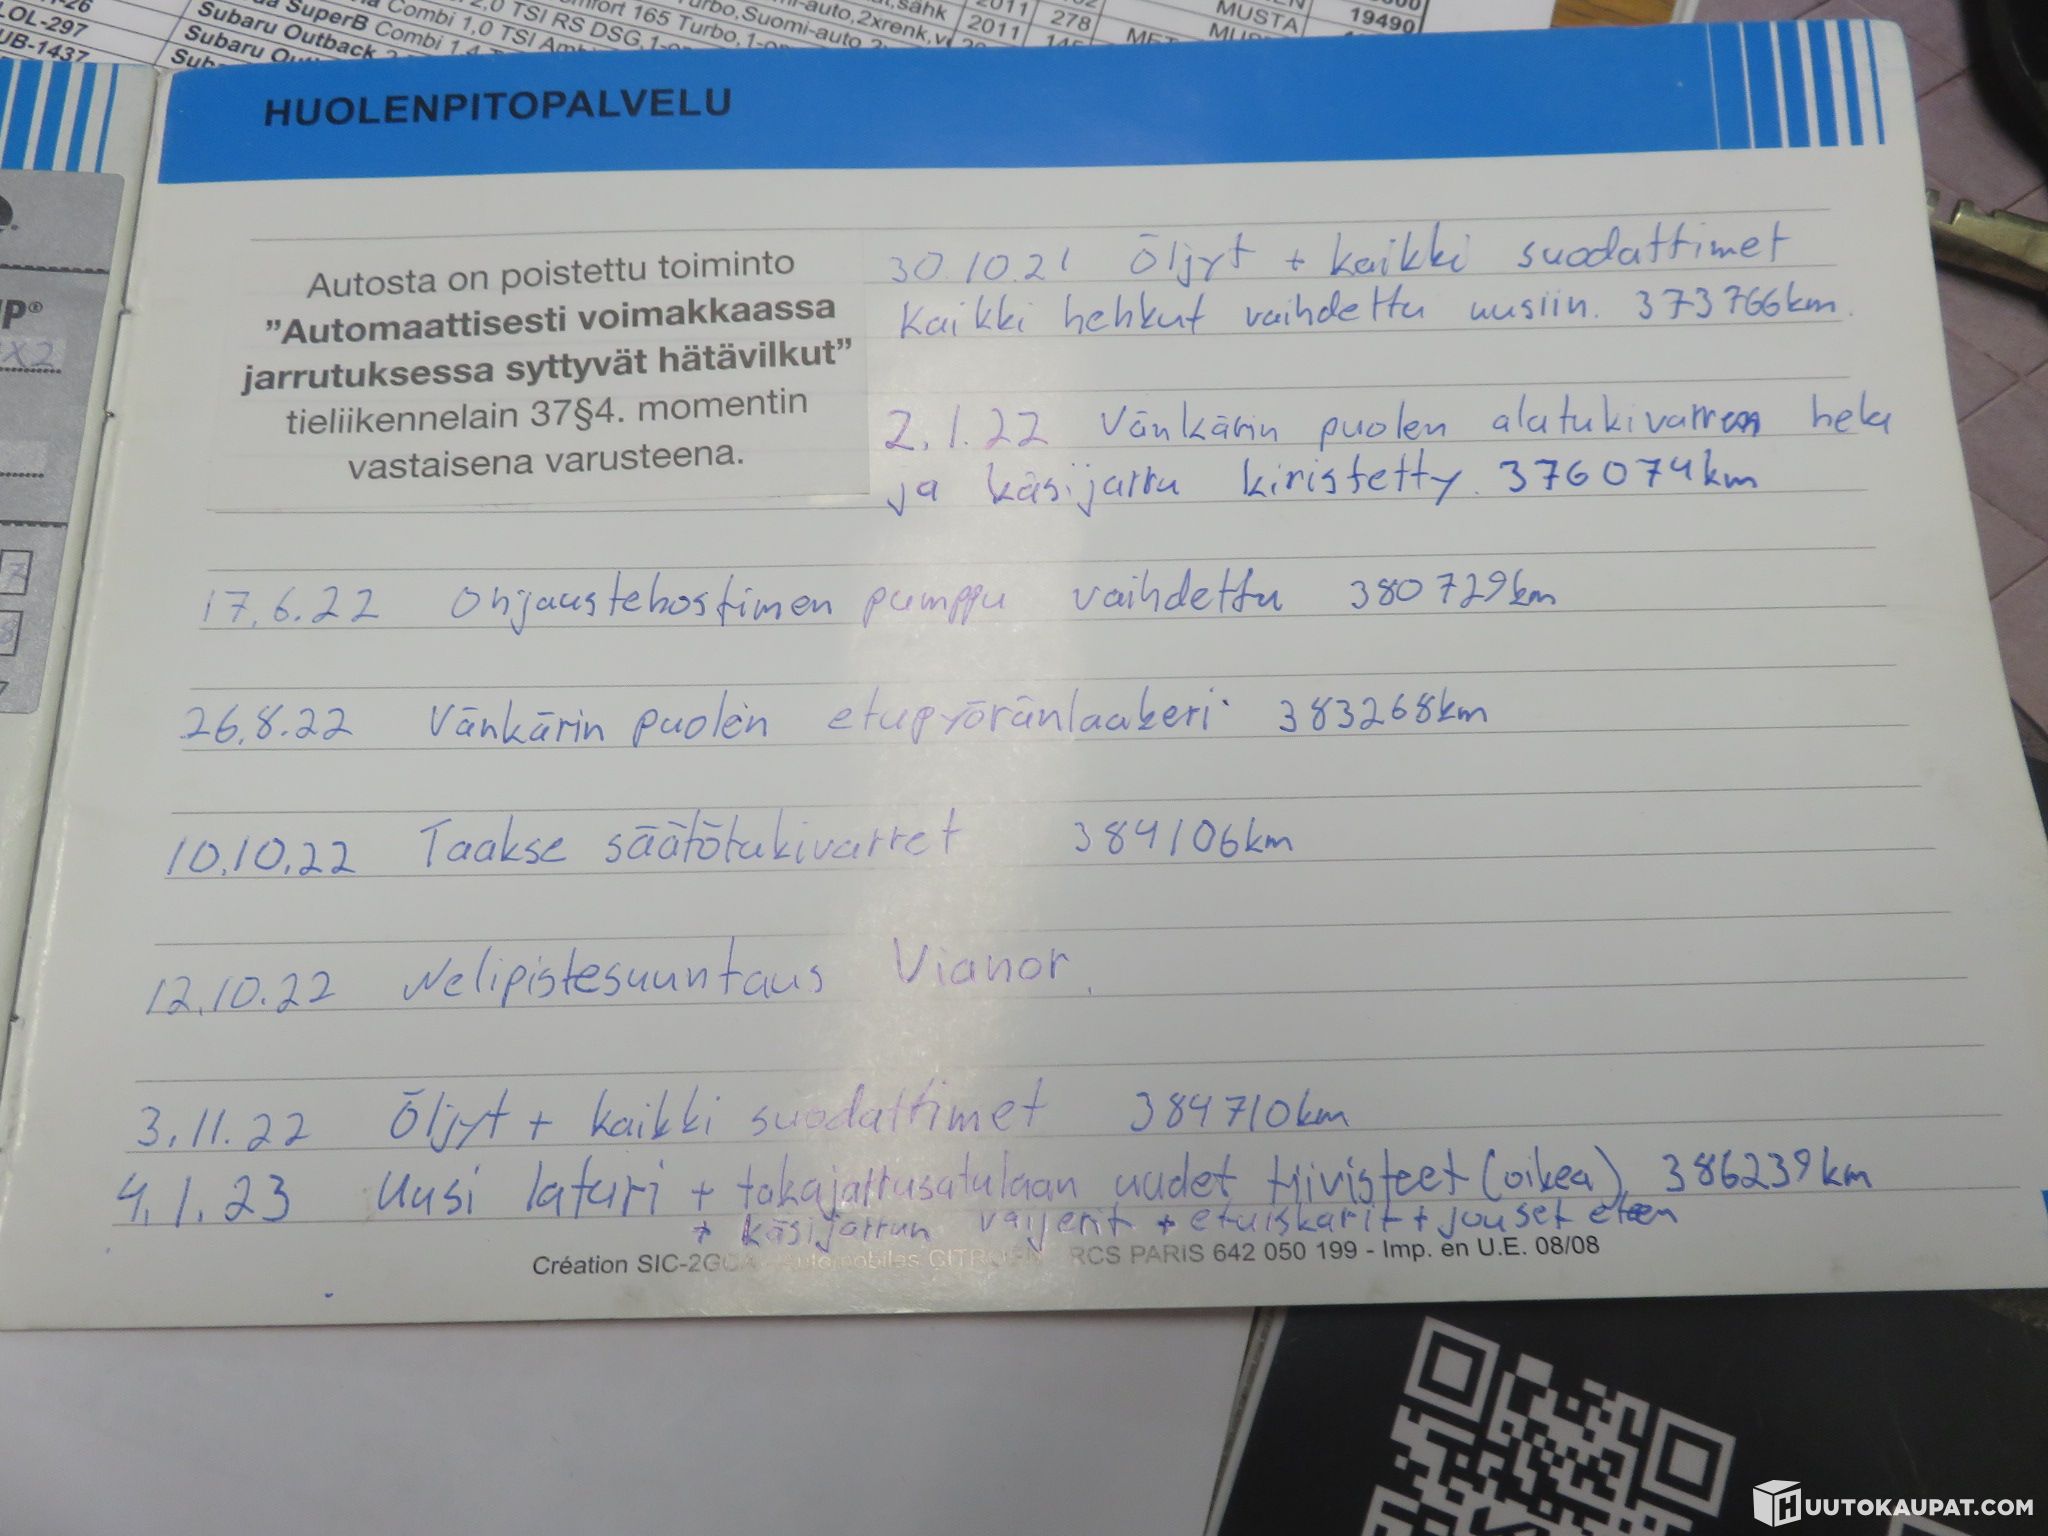 LOL-297
UB-1437
SuperB Combi 1,0 TSI
Subaru Outback
2,0 TSI RS DSG
165 Turbo
Suomi-auto
2011 278
2011
MUSTA
19490
HUOLENPITOPALVELU
Autosta on poistettu toiminto
"Automaattisesti voimakkaassa
jarrutuksessa syttyvät hätävilkut"
tieliikennelain 37§4. momentin
vastaisena varusteena.
30.10.21 Öljyt + kaikki suodattimet
Kaikki hehkut vaihdettu uusiin. 373766km.
2.1.22 Vänkärin puolen alatukivarren hela
ja käsijarru kiristetty. 376074km
17.6.22 Ohjaustehostimen pumppu vaihdettu 380729km
26.8.22 Vänkärin puolen etupyöränlaakeri 383268km
10.10.22 Taakse säätötukivarret 384106km
12.10.22 Nelipistesuuntaus Vianor.
3.11.22 Öljyt + kaikki suodattimet 384710km
4.1.23 Uusi laturi + takajarrusatulaan uudet tiivisteet (oikea) 386239km
+ käsijarrun vaijerit + etuiskarit + jouset eteen
Création SIC-2G Automobiles CITROËN RCS PARIS 642 050 199 - Imp. en U.E. 08/08
P®
X2
HUUTOKAUPAT.COM